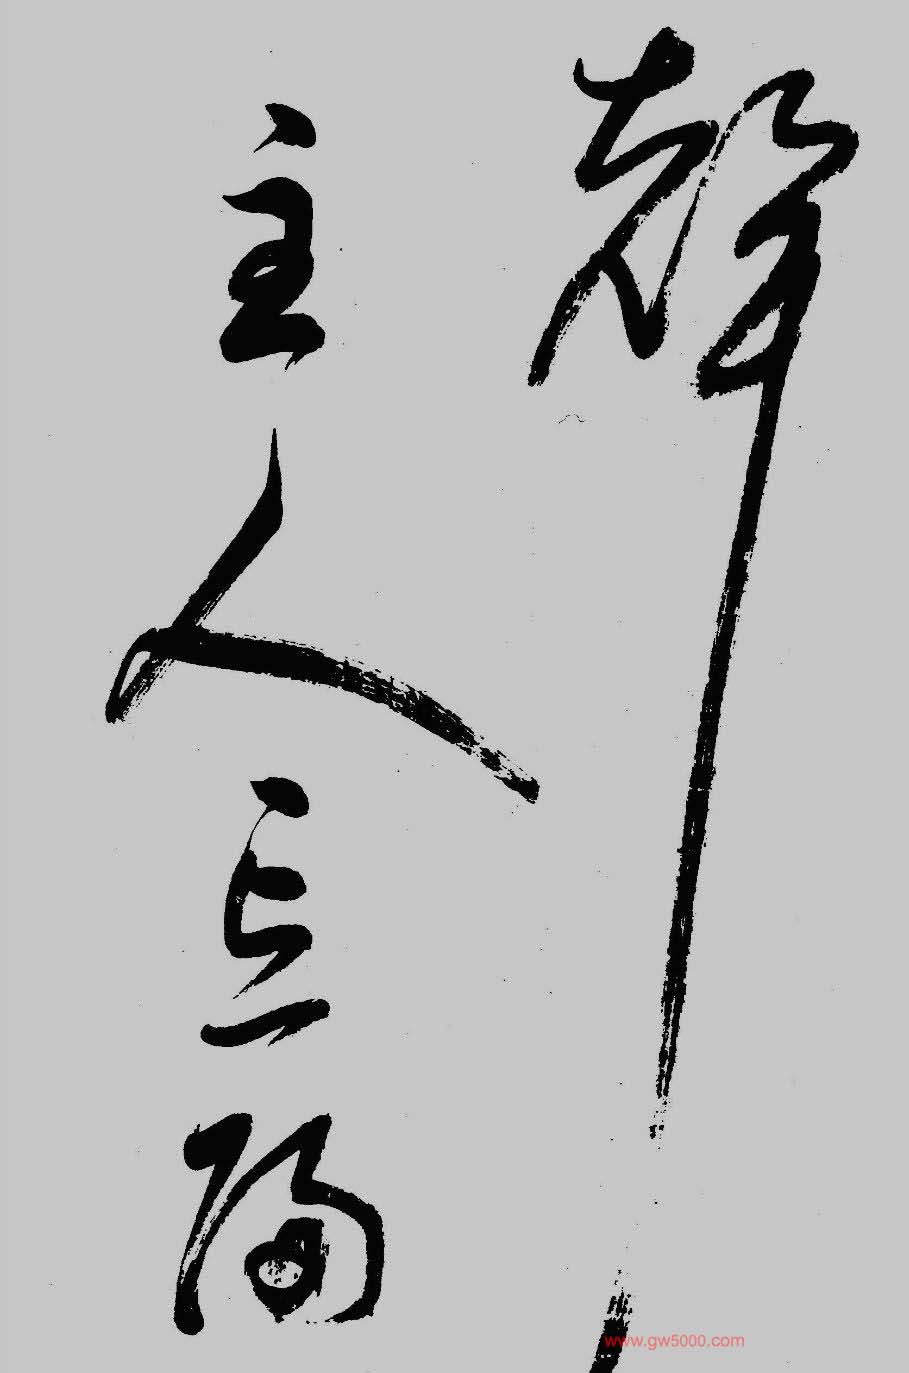 聲
主人忘歸
www.gw5000.com